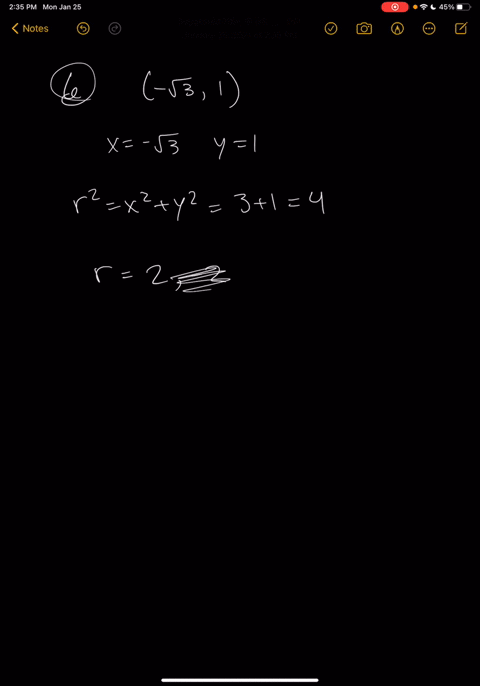 2:35 PM Mon Jan 25
45%
Notes
6 (-√3, 1)
x = -√3 y = 1
r² = x² + y² = 3 + 1 = 4
r = 2